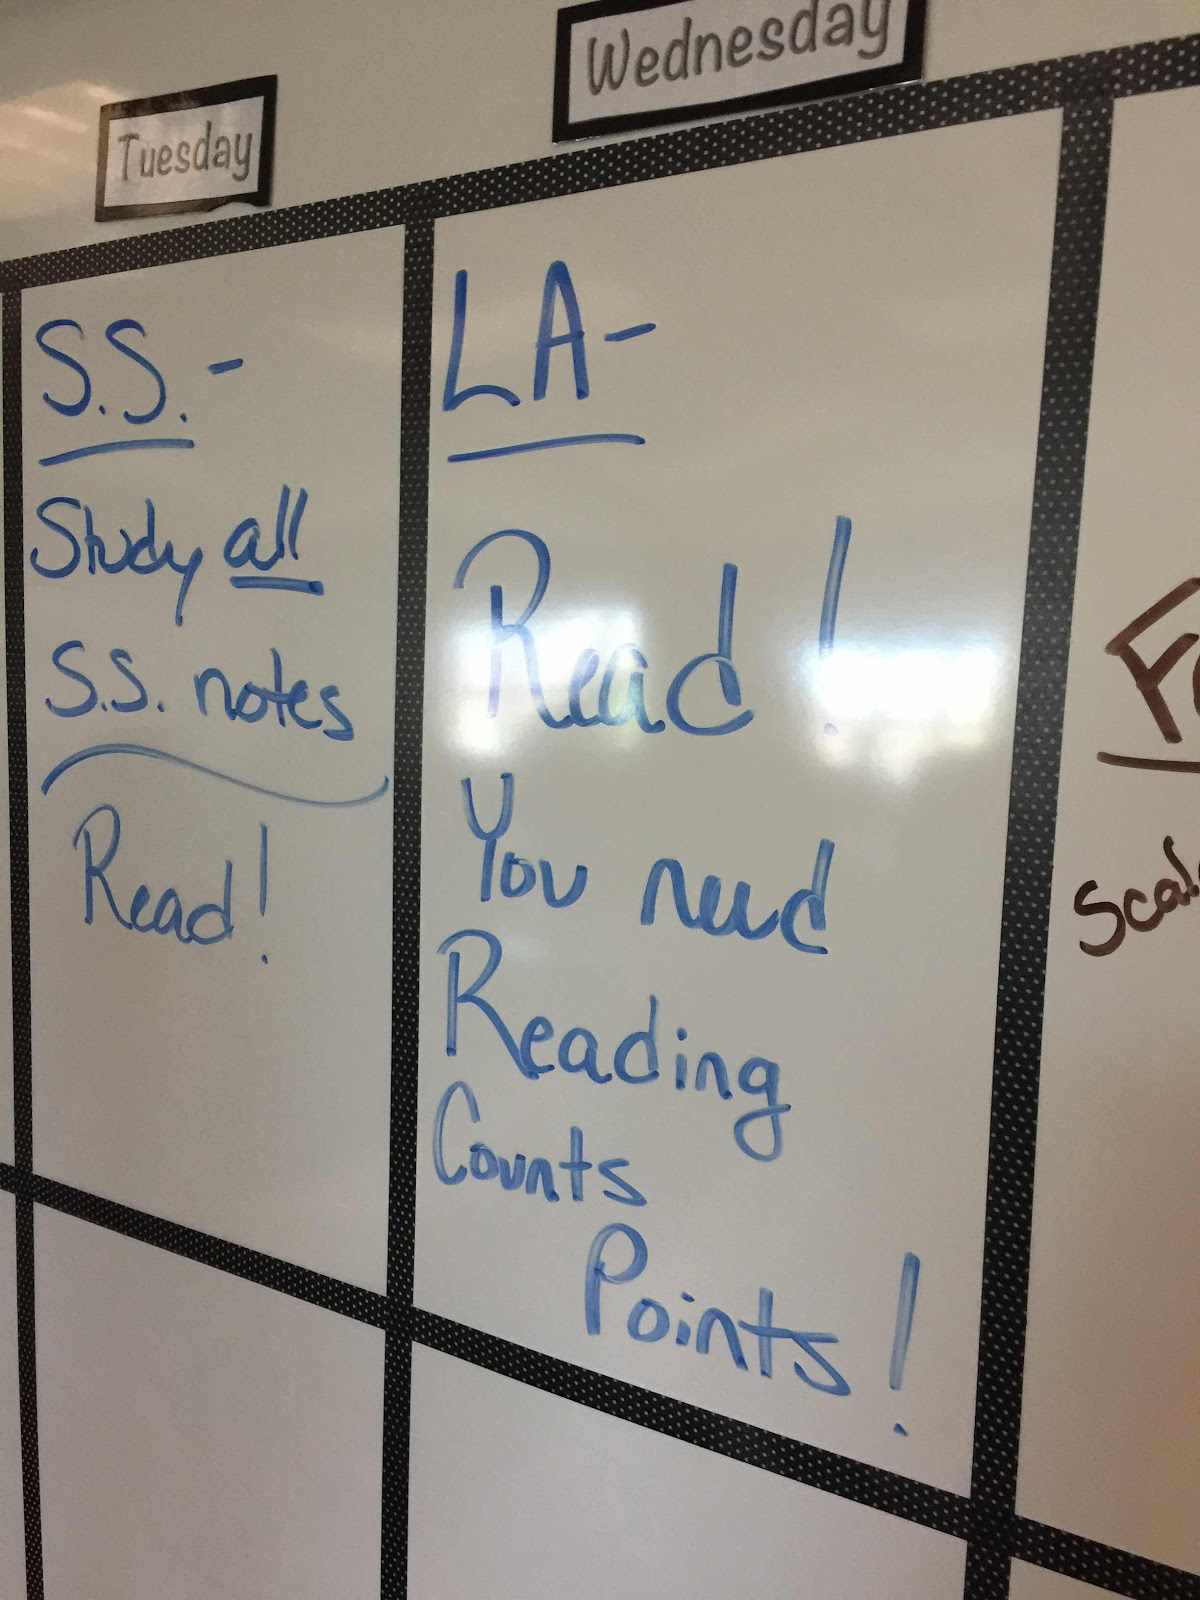 Tuesday
S.S. -
Study all
S.S. notes
Read!
Wednesday
LA-
Read!
You need
Reading
Counts
Points!